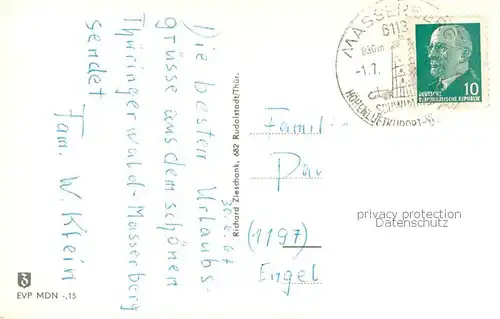 30.6.67
Die besten Urlaubs-
grüsse aus dem schönen
Thüringer wald-Masserberg
sendet
Fam. W. Klein
Richard Zieschank, 682 Rudolstadt/Thür.
EVP MDN -,15
MASSERBERG
6113
-1.7.
HÖHENLUFTKURORT
10
DEUTSCHE
DEMOKRATISCHE REPUBLIK
Famil
Pau
(1197)
Engel
privacy protection
Datenschutz